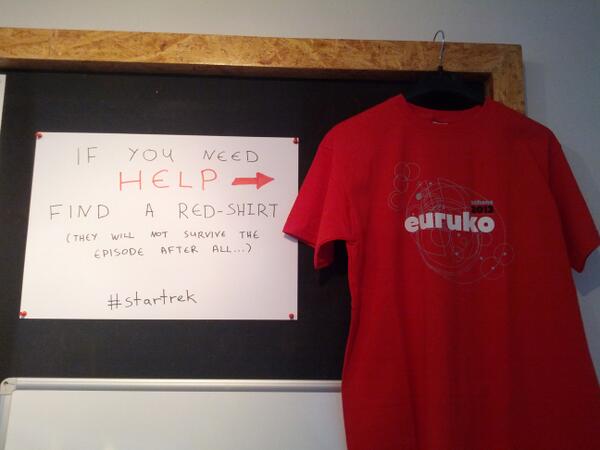 IF YOU NEED
HELP
FIND A RED-SHIRT
(THEY WILL NOT SURVIVE THE
EPISODE AFTER ALL...)
#startrek
athens
2013
euruko